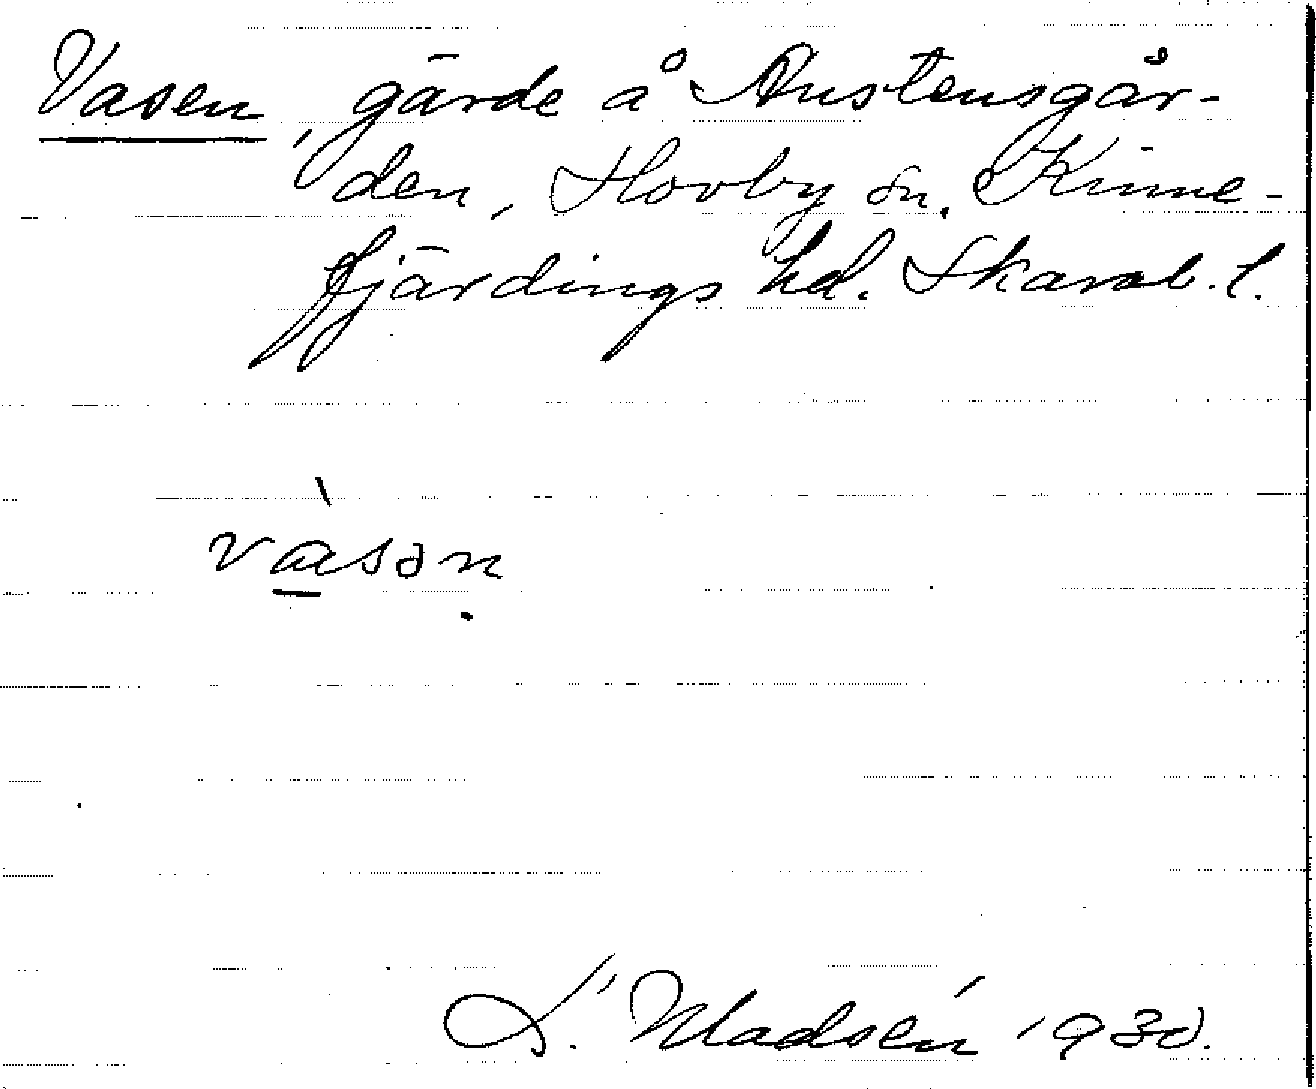 Vasen, gärde å Austensgår-
den, Hovby sn. Kinne-
fjärdings hd. Skarab. l.
vàsən
S. Madsén 1930.